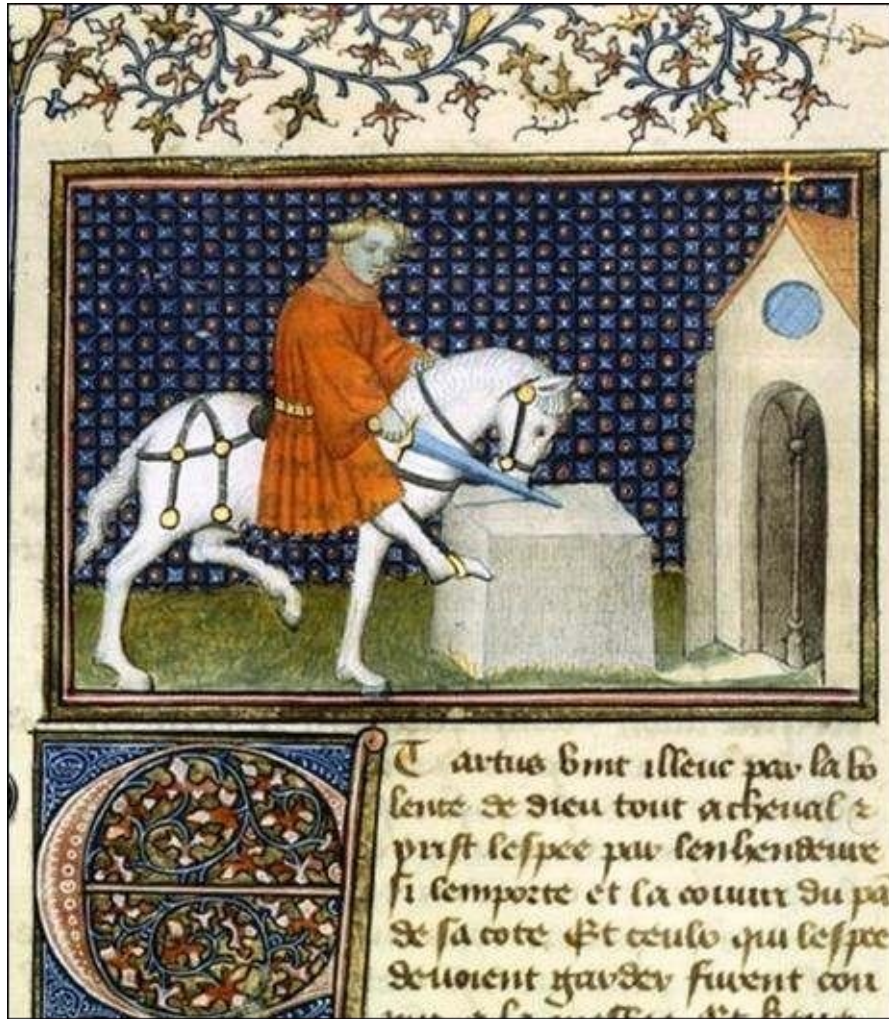 Et artus vint illeuc par la vo
lente de dieu tout a cheual &
prist lespee par lenhendeure
si lemporte et la couurt du pa
de sa cote Et ceulx qui lespee
deuoient garder furent cou